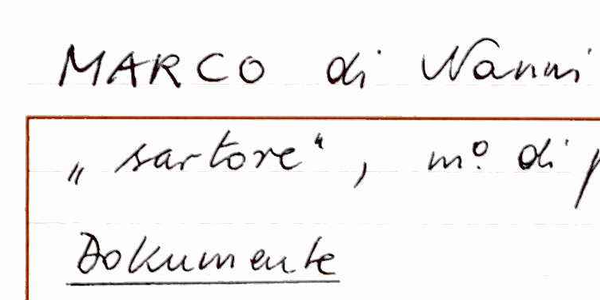 MARCO di Nanni
„sartore“, mº di
Dokumente